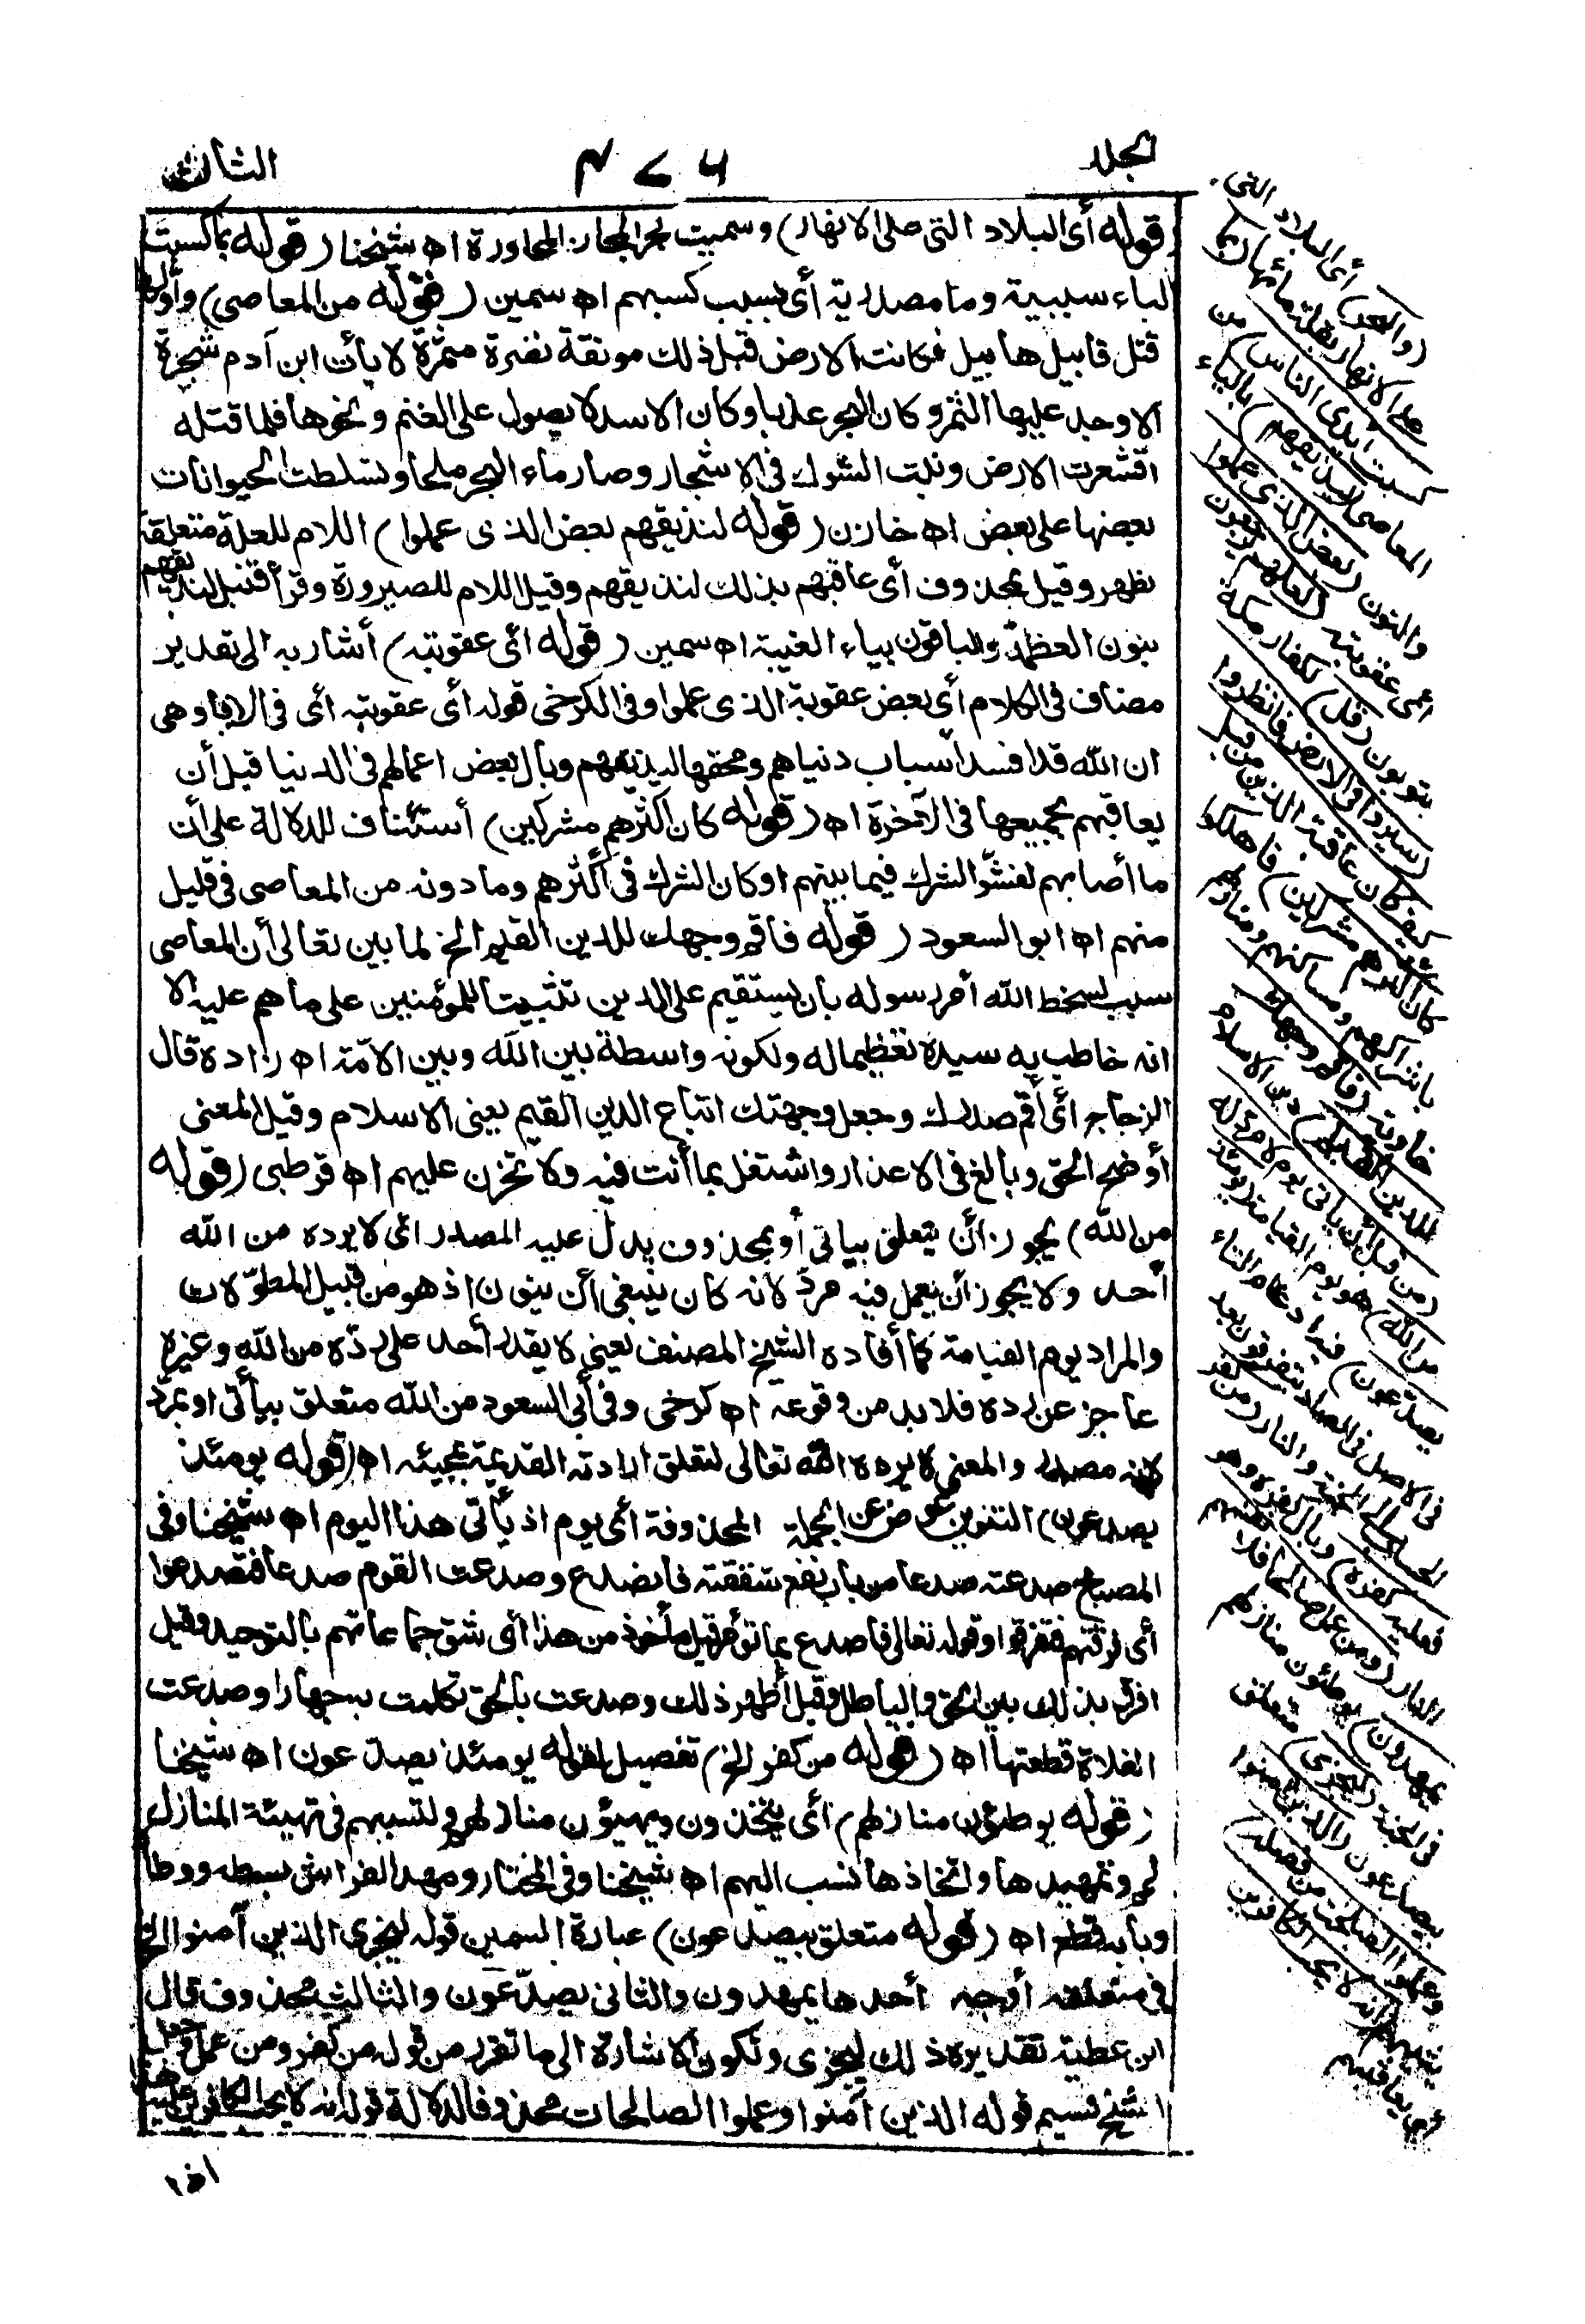 المجلد
٤٧٦
الثالث
(قوله أى البلاد التى على الانهار) وسميت بحرا لمجاورة اه شيخنا (قوله بما كسبت
الباء سببية وما مصدرية أى بسبب كسبهم اه سمين (قوله من المعاصى) وأولها
قتل قابيل هابيل فكانت الارض قبل ذلك مونقة نضرة مثمرة لا يأتى ابن آدم شجرة
الا وجد عليها الثمر وكان البحر عذبا وكان الاسد لا يصول على الغنم ونحوها فلما قتله
اقشعرت الارض ونبت الشوك فى الاشجار وصار ماء البحر ملحا وتسلطت الحيوانات
بعضها على بعض اه خازن (قوله لنذيقهم بعض الذى عملوا) اللام للعلة متعلقة
بظهر وقيل بمحذوف أى عاقبهم بذلك لنذيقهم وقيل اللام للصيرورة وقرأ قنبل لنذيقهم
بنون العظمة والباقون بياء الغيبة اه سمين (قوله أى عقوبته) أشار به الى تقدير
مضاف فى الكلام أى بعض عقوبة الذى عملوا وفى الكرخى قوله أى عقوبته أى فى الدنيا وهى
ان الله قد افسد أسباب دنياهم ومحقها ليذيقهم وبال بعض اعمالهم فى الدنيا قبل أن
يعاقبهم بجميعها فى الآخرة اه (قوله كان أكثرهم مشركين) أستئناف للدلالة على أن
ما أصابهم لفشو الشرك فيما بينهم او كان الشرك فى أكثرهم وما دونه من المعاصى فى قليل
منهم اه ابو السعود (قوله فاقم وجهك للدين القيم الخ لما بين تعالى أن المعاصى
سبب لسخط الله أمر رسوله بأن يستقيم على الدين تثبيتا للمؤمنين على ما هم عليه الا
انه خاطب به سيده تعظيما له ولكونه واسطة بين الله وبين الامّة اه زاده قال
الزجاج أى أقم صدرك وجعل وجهتك اتباع الدين القيم يعنى الاسلام وقيل المعنى
أوضح الحق وبالغ فى الاعذار واشتغل بما أنت فيه ولا تحزن عليهم اه قرطبى (قوله
من الله) يجوز أن يتعلق بياتى أو بمحذوف يدل عليه المصدر اى لا يرده من الله
أحد ولا يجوز أن يعمل فيه مردّ لانه كان ينبغى أن ينون اذ هو من قبيل المطوّلات
والمراد يوم القيامة كما أفاده الشيخ المصنف يعنى لا يقدر أحد على ردّه من الله وغيره
عاجز عن رده فلا بد من وقوعه اه كرخى وفى أبى السعود من الله متعلق بيأتى او بمردّ
لانه مصدر والمعنى لا يرده الله تعالى لتعلق ارادته القديمة بمجيئه اه (قوله يومئذ
يصدعون) التنوين عوض عن الجملة المحذوفة أى يوم اذ يأتى هذا اليوم اه شيخنا وفى
المصباح صدعته صدعا من باب نفع شققته فانصدع وصدعت القوم صدعا فتصدعوا
أى فرقتهم فتفرقوا وقوله تعالى فاصدع بما تؤمر قيل مأخوذ من هذا أى شق جماعاتهم بالتوحيد وقيل
افرق بذلك بين الحق والباطل وقيل أظهر ذلك وصدعت بالحق تكلمت به جهارا وصدعت
الفلاة قطعتها اه (قوله من كفر الخ) تفصيل لقوله يومئذ يصدعون اه شيخنا
(قوله يوطئون منازلهم) أى يتخذون ويهيئون منازلهم ولتسببهم فى تهيئة المنازل
لهم وتمهيدها واتخاذها نسب اليهم اه شيخنا وفى المختار ومهد الفراش بسطه ووطأه
وبابه قطع اه (قوله متعلق بيصدعون) عبارة السمين قوله ليجزى الذين آمنوا الخ
فى متعلقه أوجه أحدها يمهدون والثانى يصدّعون والثالث محذوف قال
ابن عطية تقديره ذلك ليجزى وتكون الاشارة الى ما تقرر من قوله من كفر ومن عمل وجعل
الشيخ قسيم قوله الذين آمنوا وعملوا الصالحات محذوفا لدلالة قوله انه لا يحب الكافرين عليه هذا
(والبحر) أى البلاد التى
على الانهار بقلة مائها (بما
كسبت أيدى الناس) من
المعاصى (ليذيقهم) بالياء
والنون (بعض الذى عملوا)
أى عقوبته (لعلهم يرجعون)
يتوبون (قل) لكفار مكة
(سيروا فى الارض فانظروا
كيف كان عاقبة الذين من قبل
كان أكثرهم مشركين) فاهلكوا
باشراكهم ومساكنهم ومنازلهم
خاوية (فاقم وجهك
للدين القيم) دين الاسلام
(من قبل أن ياتى يوم لا مرد له
من الله) هو يوم القيامة (يومئذ
يصدّعون) فيه ادغام التاء
فى الاصل فى الصاد يتفرقون بعد
الحساب الى الجنة والنار (من كفر
فعليه كفره) وبال كفره وهو
النار (ومن عمل صالحا فلأنفسهم
يمهدون) يوطئون منازلهم
فى الجنة (ليجزى) متعلق
بيصدعون (الذين آمنوا
وعملوا الصالحات من فضله)
يثيبهم (انه لا يحب الكافرين)
أى يعاقبهم